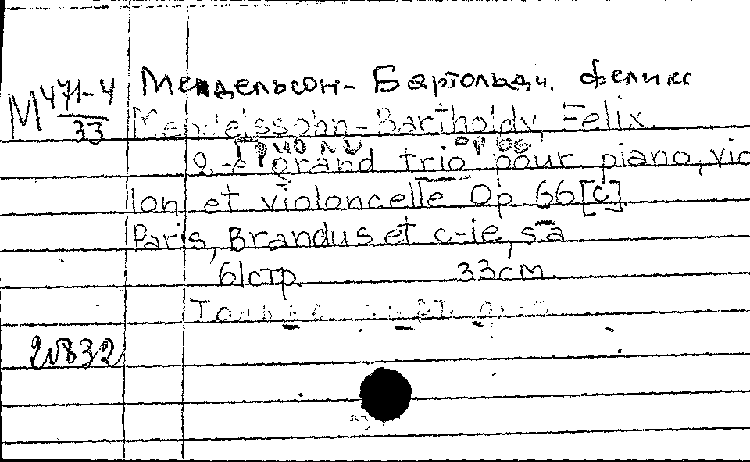 М 471-4/33 Мендельсон-Бартольди, Феликс
Mendelssohn-Bartholdy, Felix
Трио
2-e grand trio pour piano, vio
lon et violoncelle Op 66 [c].
Paris, Brandus et c-ie, s a
61стр. 33см.
Только
20832